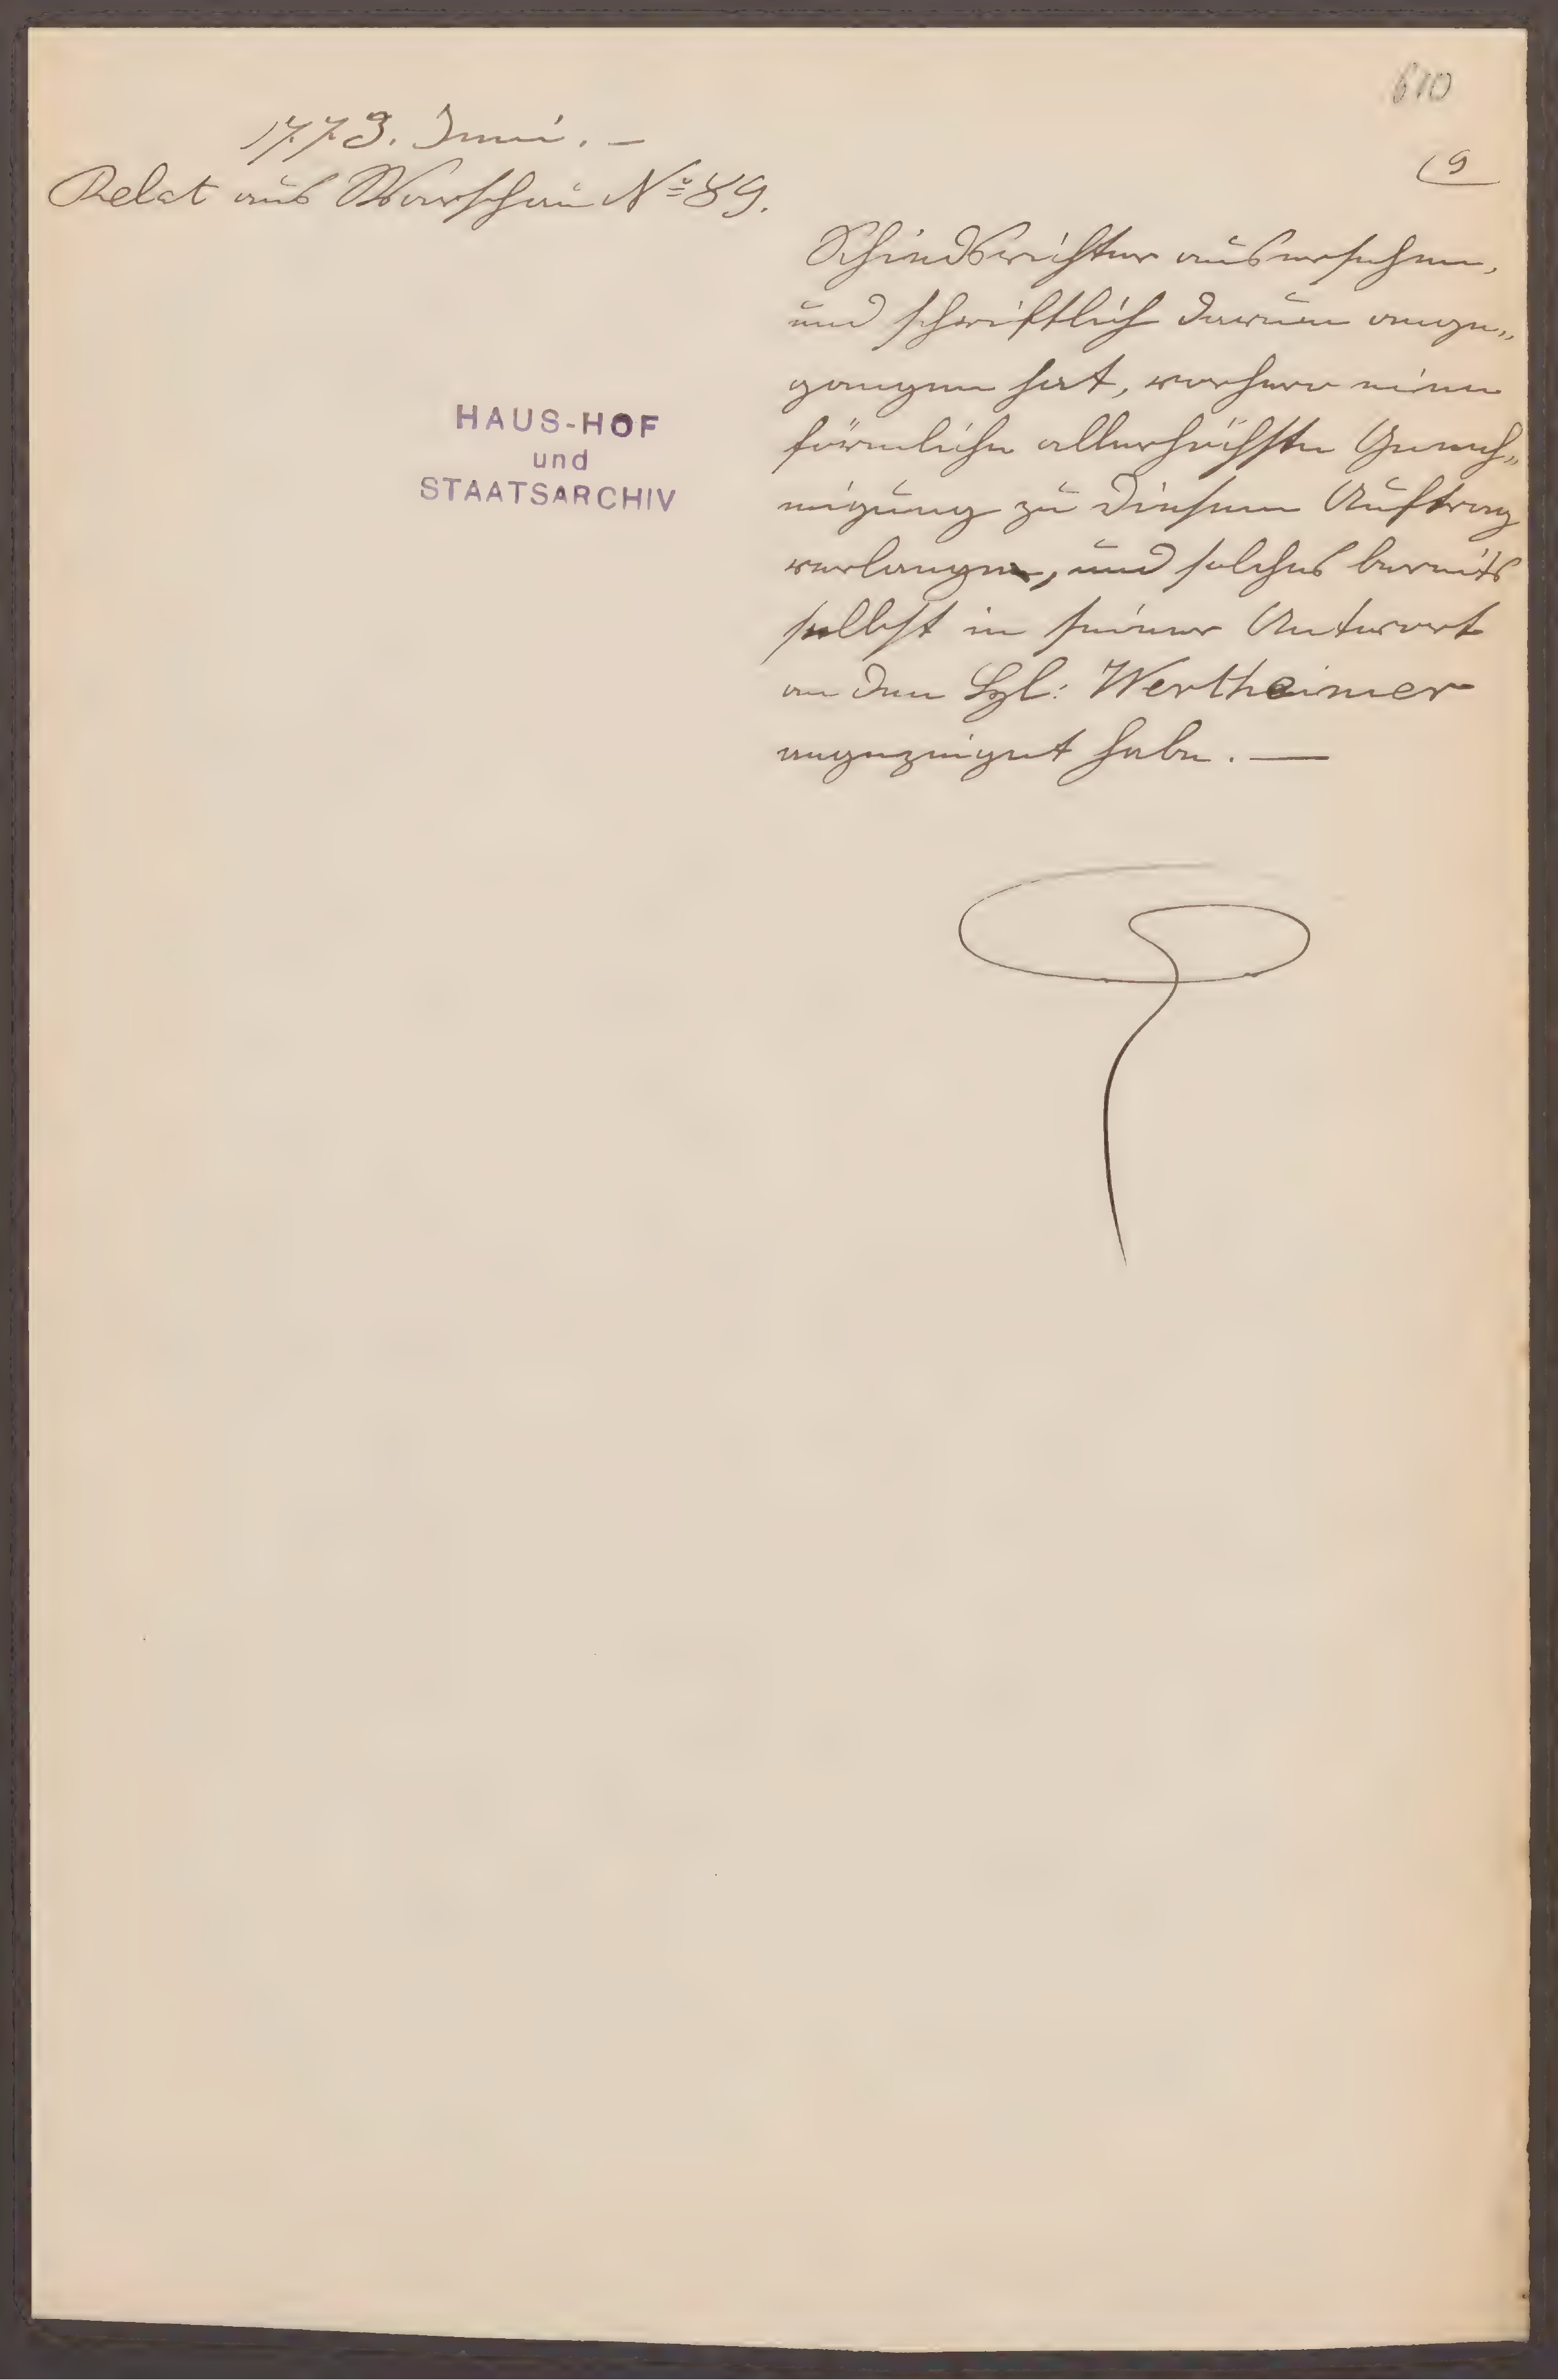 610
(9
1773. Juni. –
Relat aus Warschau No 89.
HAUS-HOF
und
STAATSARCHIV
Schiedsrichter ausersehen,
und schriftlich darum ange„
gangen hat, vorhero eine
förmliche allerhöchste Geneh„
migung zu diesem Auftrag
verlangen, und solches bereits
selbst in seiner Antwort
an den Wertheimer
angezeiget habe. —